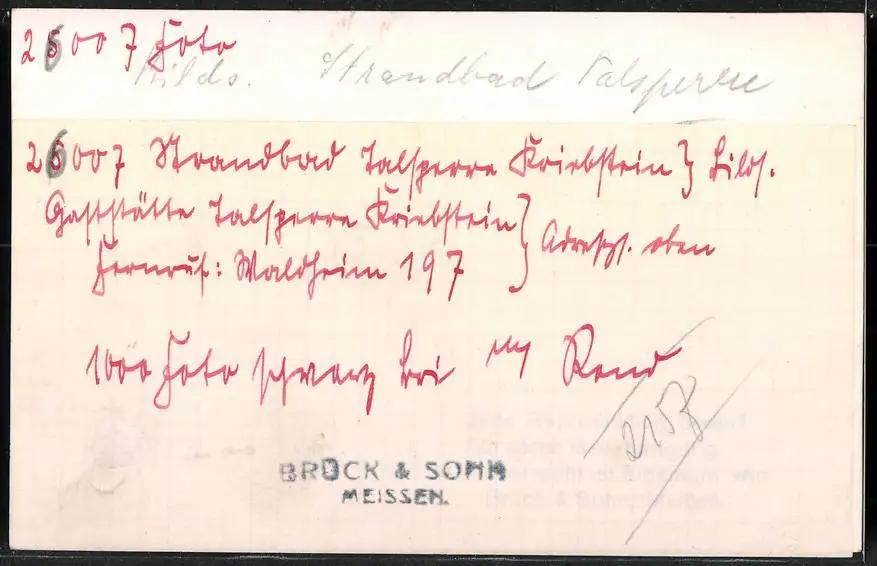 26007 Foto
Bilds. Strandbad Talsperre
26007 Strandbad Talsperre Kriebstein } Bilds.
Gaststätte Talsperre Kriebstein } Adresss. oben
Fernruf: Waldheim 197
1000 Foto schwarz bei m Rand
BRÜCK & SOHN
MEISSEN.